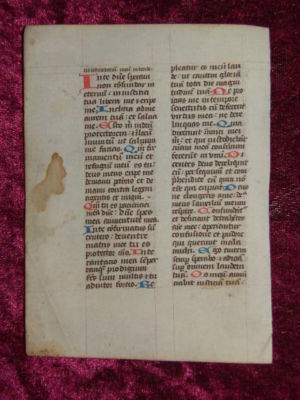 In te dñe speraui
non confundar in
eternum in iusticia
tua libera me et eripe
me Inclina ad me
aurem tuam et salua
me Esto
protectorem et in locum
munitum ut saluum
me facias
mamentum meum et
refugium meum es tu
deus meus eripe me
de manu et de
manu contra legem
agentis et iniqui
tu es paciencia
mea dñe dñe spes
mea a iuuentute mea
In te confirmatus
de uentre
matris mee tu es
protector In te
cantatio mea semper
prodigium
multis et tu
adiutor fortis Re
pleatur os meum lau
de ut cantem gloriam
tuam tota die magni
tudinem tuam Ne pro
icias me in tempore
senectutis cum defecerit
virtus mea ne dere
linquas me Quia
dixerunt inimici mei
et qui custodiebant
animam meam consilium
fecerunt in unum Di
centes deus dereliquit
eum persequimini et com
prehendite eum quia
est qui eripiat Deus
ne elongeris a me de
us meus
respice Confundant
et deficiant
mee operiantur
confusione et pudore
qui querunt mala
michi Ego autem
semper sperabo et adiciam
super omnem laudem
tuam Os meum annun
ciabit tuam